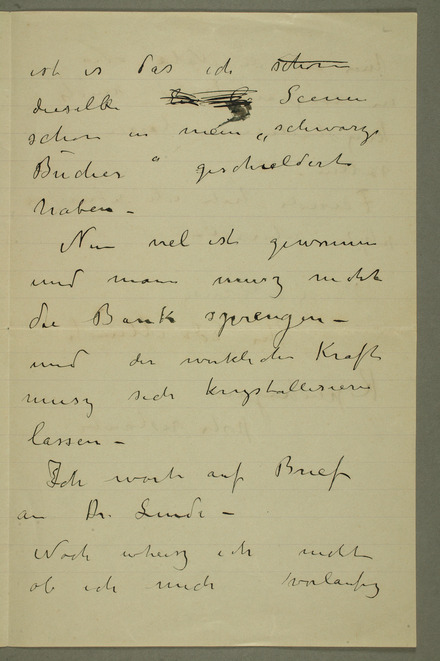 ist es das ich schon
dieselbe Scenen
schon in mein „schwarze
Bücher" geschieldert
haben –
Nun viel ist gewonnen
und man musz nicht
die Bank sprengen –
und der wirkliche Kraft
musz sich krystallisieren
lassen –
Ich wart auf Brief
an Dr. Linde –
Noch weisz ich nicht
ob ich mich vorläufig